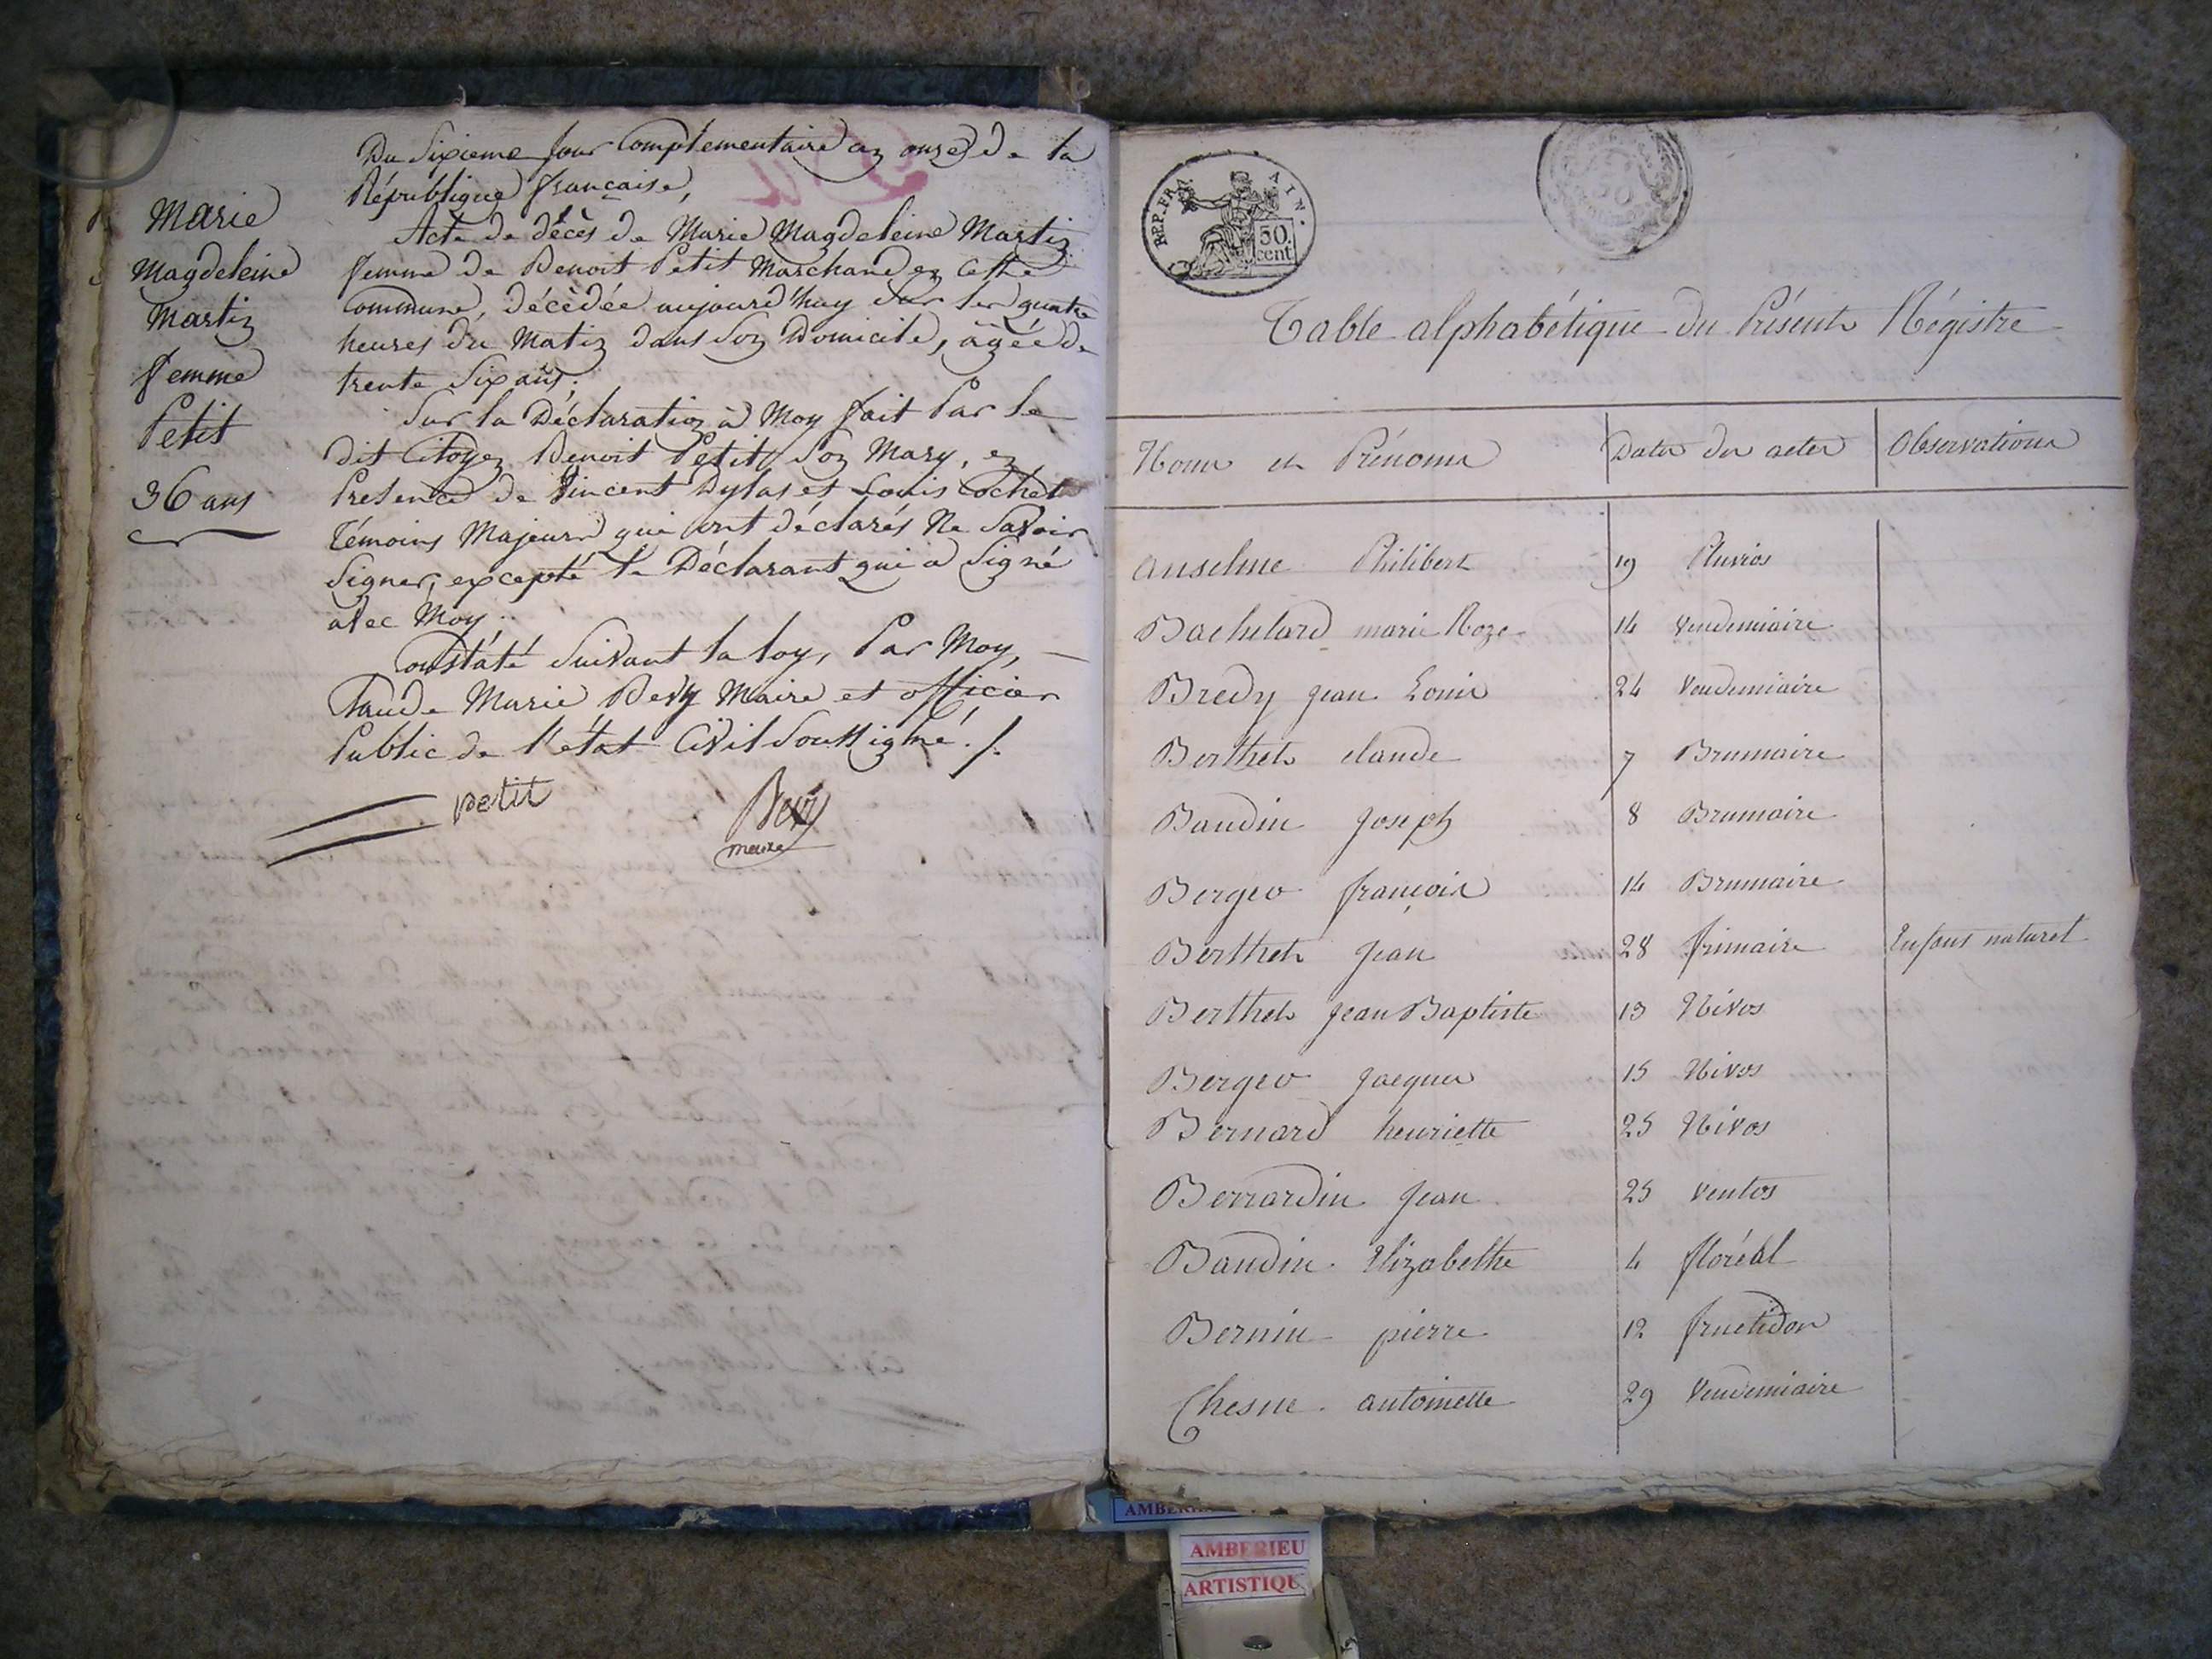 Marie
Magdeleine
Martin
femme
Petit
36 ans
Du Sixieme Jour Complementaire an onze de la
République française,
Acte de décès de Marie Magdeleine Martin
femme de Benoit Petit Marchand en cette
Commune, décédée aujourd'huy sur les quatre
heures du Matin dans son Domicile, âgée de
trente Six ans;
Sur la Déclaration à Moy fait Par le
dit Citoyen Benoit Petit, son Mary, en
Presence de Vincent Dylas et Louis Cochet
Témoins Majeurs qui ont déclarés Ne Savoir
Signer, excepté le Déclarant qui a Signé
avec Moy.
Constaté Suivant la loy, Par Moy,
Claude Marie Maire et officier
Public de l'état Civil Soussigné ./.
petit
maire
REP. FRA. AIN.
50
cent
Table alphabétique du Présent Régistre
Noms et Prénoms Dates des actes Observations
anselme Philibert 19 Pluvios
Bachelard marie Roze 14 Vendemiaire
Bredy jean Louis 24 Vendemiaire
Berthet claude 7 Brumaire
Baudin joseph 8 Brumaire
Berger françois 14 Brumaire
Berthet jean 28 frimaire Enfant naturel
Berthet jean Baptiste 13 Nivos
Berger jacques 15 Nivos
Bernard henriette 25 Nivos
Bernardin jean 25 Ventos
Baudin Elizabethe 4 floréal
Bernin pierre 12 fructidor
Chesne antoinette 29 Vendemiaire
AMBERIEU
ARTISTIQU